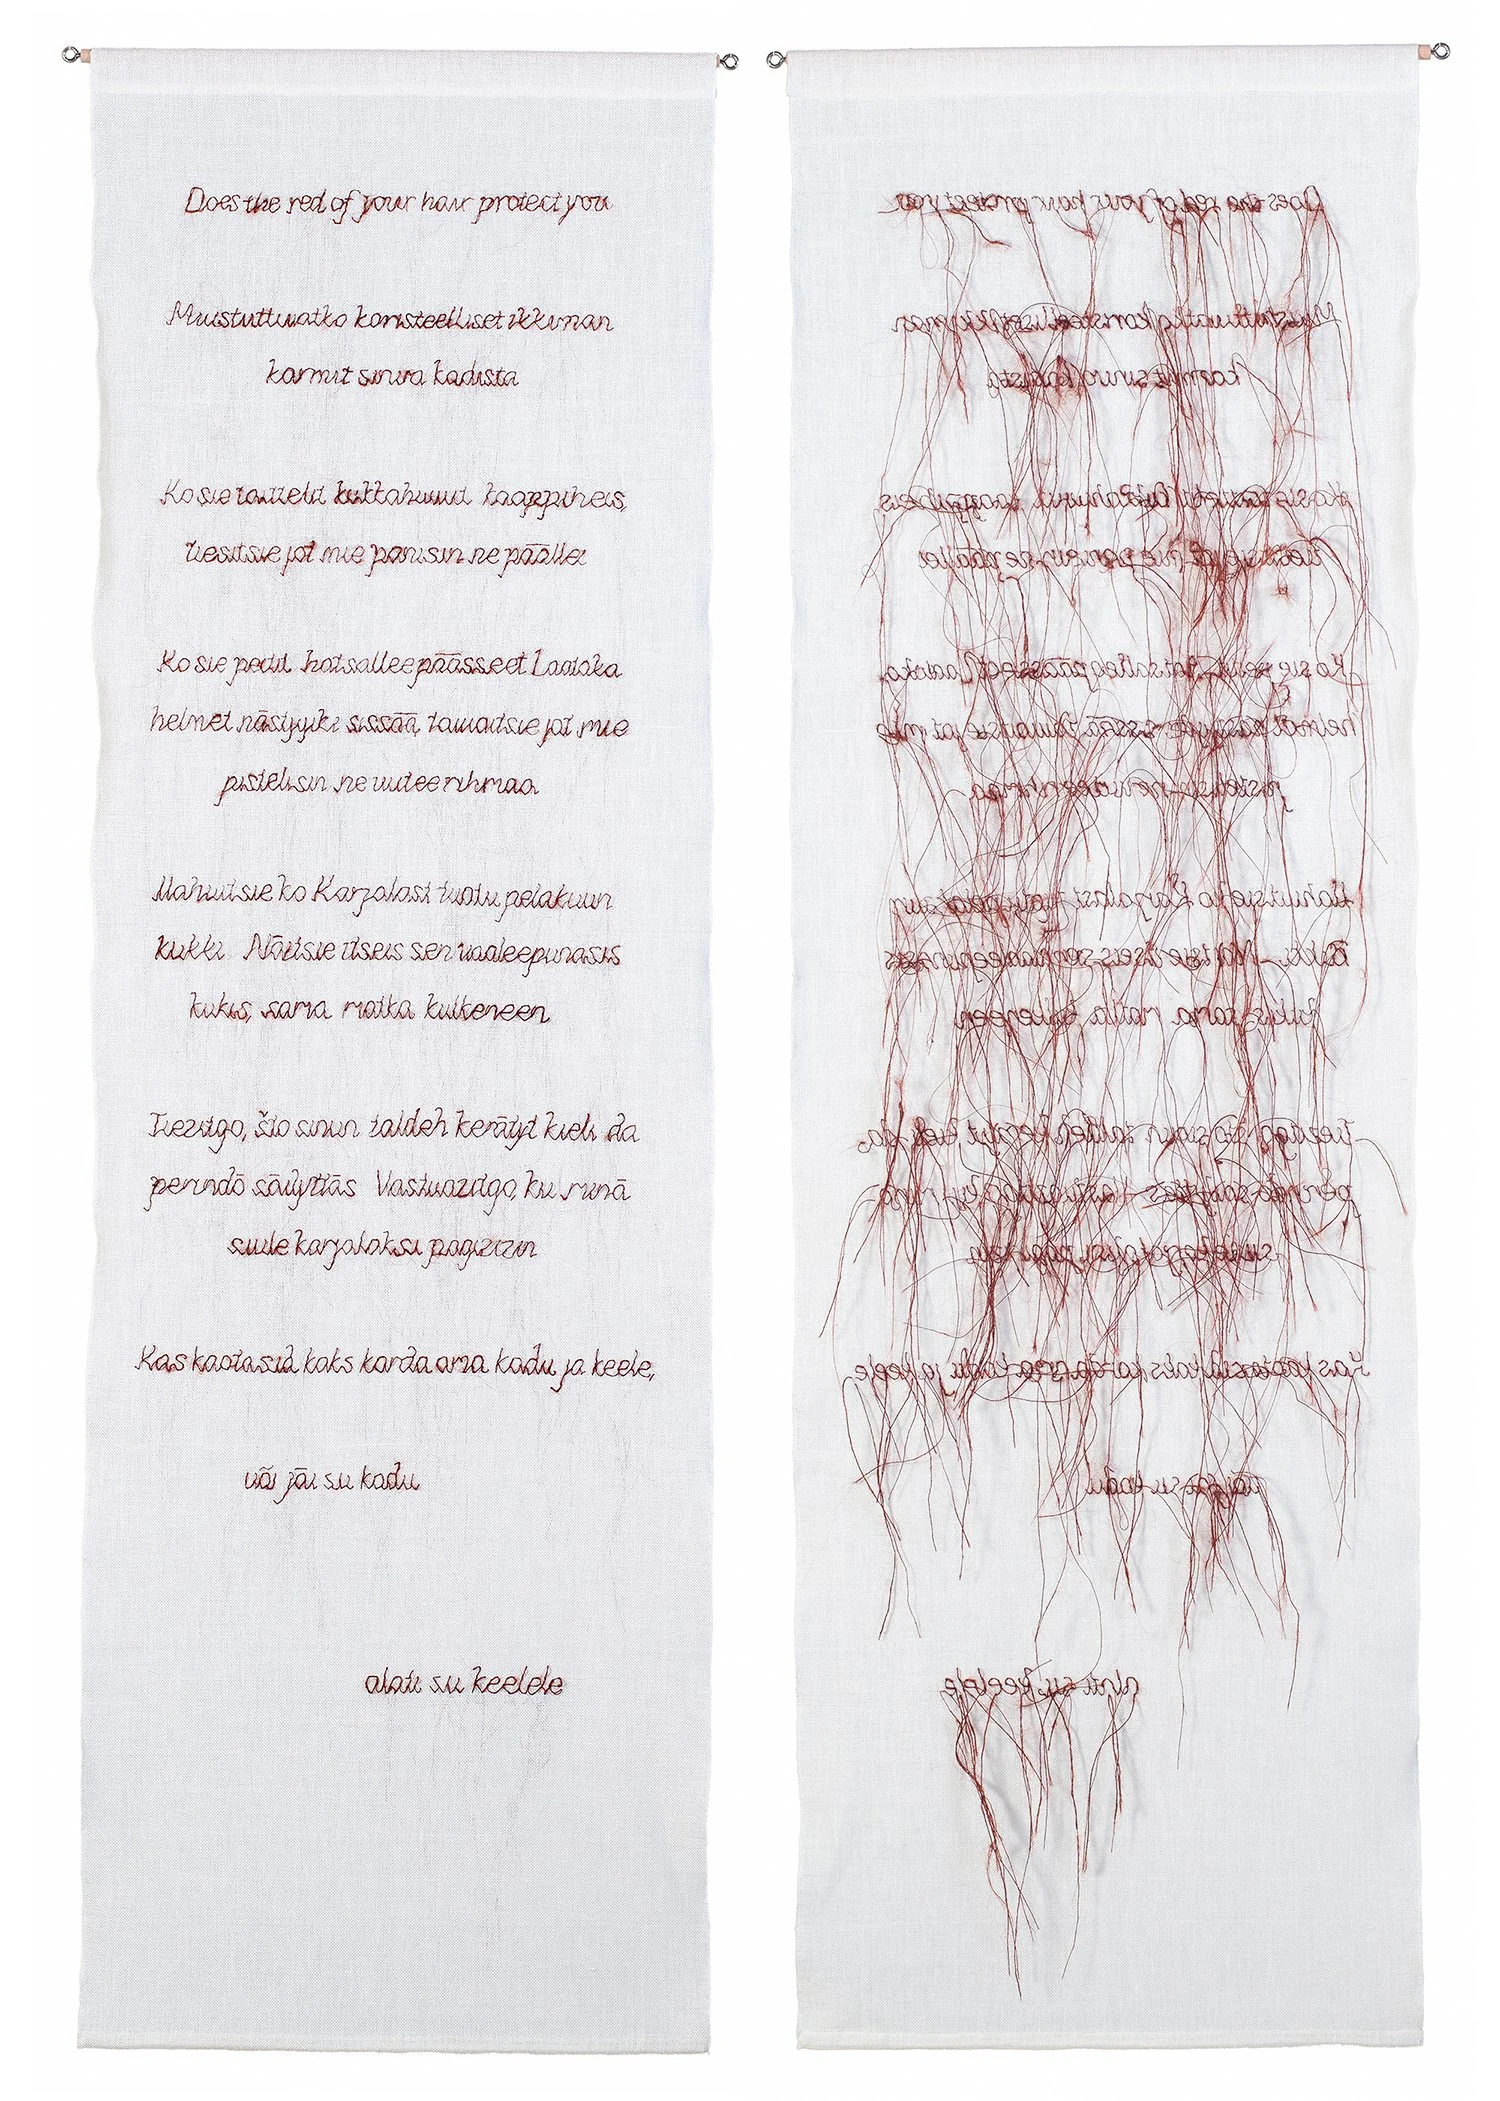 Does the red of your hair protect you
Muistuttivatko koristeelliset ikkunan
karmit sinua kodista
Ko sie taittelit kukkahuivit kaappiheis,
tiesitsie jot mie panisin ne päälle
Ko sie peitit hotsallee päässeet Laatoka
helmet nästyyki sissää, jot mie
pistelisin ne uutee rihmaa
ko Karjalast tuotu pelakuun
kukki Näitsie itseis sen vaaleepunasis
kukis, sama matka kulkeneen
Tiezitgo, što sinun taldeh kerätyt kieli da
perindö säilyttäs Vastuazitgo, ku minä
sinule karjalaksi pagizizin
Kas kaotasid kaks korda oma kodu ja keele,
või jäi su kodu
alati su keelele